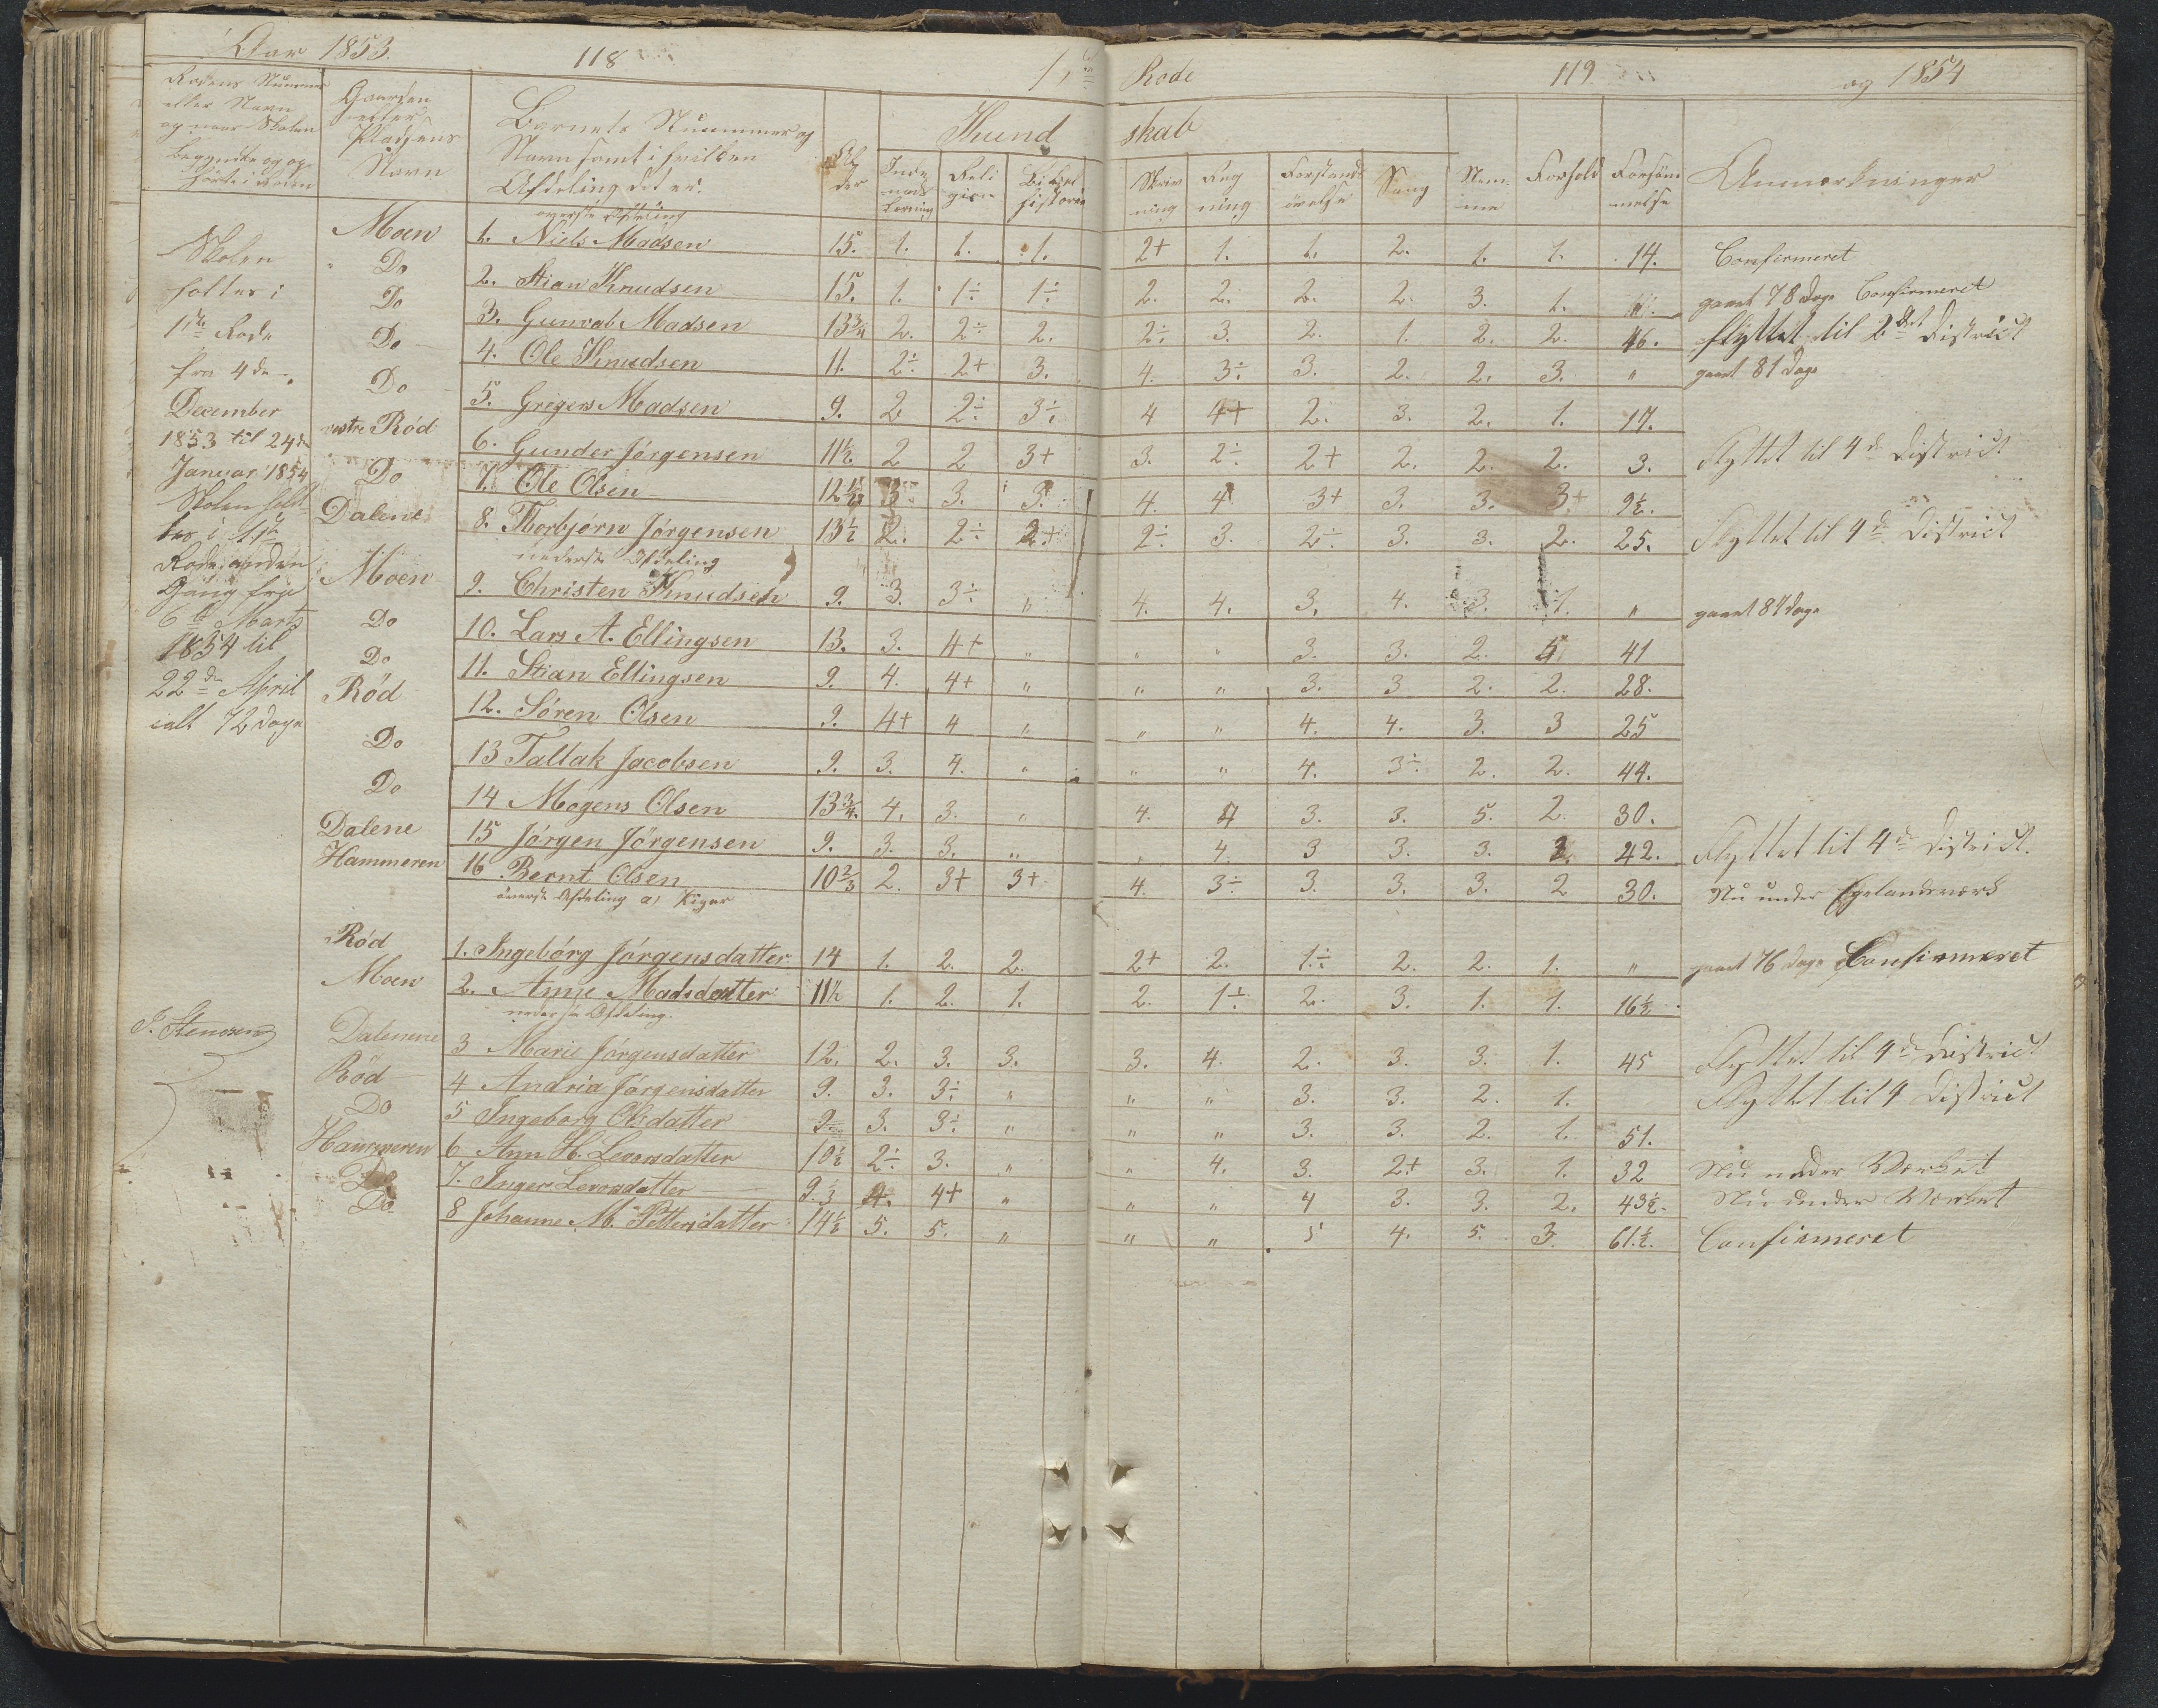 Aar 1853. 118 1ste Rode 119 og 1854
Rodens Nummer eller Navn og naar Skolen begyndte og ophørte i samme
Gaarden eller Pladsens Navn
Barnets Nummer og Navn samt i hvilken Afdeling det er.
Alder
Kundskab
Indenadslæsning
Religion
Bibelhistorie
Skrivning
Regning
Forstandsøvelse
Sang
Nemme
Forhold
Forsømmelse
Anmærkninger
Skolen
holdtes i
1ste Rode
fra 4de
December
1853 til 24de
Januar 1854
Skolen hold-
tes i 1ste
Rode anden
Gang fra
6te Marts
1854 til
22de April
ialt 72 Dage
øverste Afdeling
Moen 1. Niels Madsen 15. 1. 1. 1. 2+ 1. 1. 2. 1. 1. 14. Confirmeret
Do 2. Stian Knudsen 15. 1. 1÷ 1÷ 2. 2. 2. 2. 3. 1. gaaet 78 Dage Confirmeret
Do 3. Gunvald Madsen 13¾ 2. 2÷ 2. 2÷ 3. 2. 1. 2. 2. 46. flyttet til 2det District
Do 4. Ole Knudsen 11. 2÷ 2+ 3. 4. 3÷ 3. 2. 2. 3. " gaaet 81 Dage
Do 5. Gregers Madsen 9. 2 2÷ 3÷ 4 4+ 2. 3. 2. 1. 17.
vestre Rød 6. Gunder Jørgensen 11½ 2 2 3+ 3. 2÷ 2+ 2. 2. 2. 3. Flyttet til 4de District
Do 7. Ole Olsen 12½ 3 3. 3. 4. 4 3+ 3. 3. 3+ 9½.
Dalene 8. Thorbjørn Jørgensen 13½ 2. 2÷ 2+ 2÷ 3. 2÷ 3. 3. 2. 25. Flyttet til 4de District
nederste Afdeling
Moen 9. Christen Knudsen 9. 3. 3÷ " 4. 4. 3. 4. 3. 1. " gaaet 87 Dage
Do 10. Lars A. Ellingsen 13. 3. 4+ " " " 3. 3. 2. 41
Do 11. Stian Ellingsen 9. 4. 4+ " " " 3. 3 2. 2. 28.
Rød 12. Søren Olsen 9. 4+ 4 " " " 4. 4. 3. 3 25
Do 13 Tallak Jacobsen 9. 3. 4. " " " 4. 3÷ 2. 2. 44.
Do 14 Mogens Olsen 13¾. 4. 3. " 4. 4 3. 3. 5. 2. 30.
Dalene 15 Jørgen Jørgensen 9. 3. 3. " " 4. 3 3. 3. 2. 42. Flyttet til 4de District.
Hammeren 16 Bernt Olsen 10⅔ 2. 3+ 3+ 4. 3÷ 3. 3. 3. 2 30. Nu under Egelandsværk
øverste Afdeling a) Piger
Rød 1. Ingebørg Jørgensdatter 14 1. 2. 2. 2+ 2. 1÷ 2. 2. 1. " gaaet 76 Dage Confirmeret
Moen 2. Anne Madsdatter 11½ 1. 2. 1. 2. 1÷ 2. 3. 1. 1. 16½
nederste Afdeling.
Dalenene 3 Marie Jørgensdatter 12. 2. 3. 3. 3. 4. 2. 3. 3. 1. 45 Flyttet til 4de District
Rød 4 Andrea Jørgensdatter 9. 3. 3÷ " " " 3. 3. 2. 1. Flyttet til 4 District
Do 5 Ingeborg Olsdatter 9 3. 3÷ " " " 3. 3. 2. 1. 51.
Hammeren 6 Ann H. Levorsdatter 10½ 2÷ 3. " " 4. 3. 2+ 3. 1. 32 Nu under Værket
Do 7. Inger Levorsdatter 9⅓ 4. 4+ " " " 4 3. 3. 2. 43½. Nu under Værket
Do 8 Johanne M. Pettersdatter 14½ 5. 5. " " " 5 4. 5. 3. 61½. Confirmeret